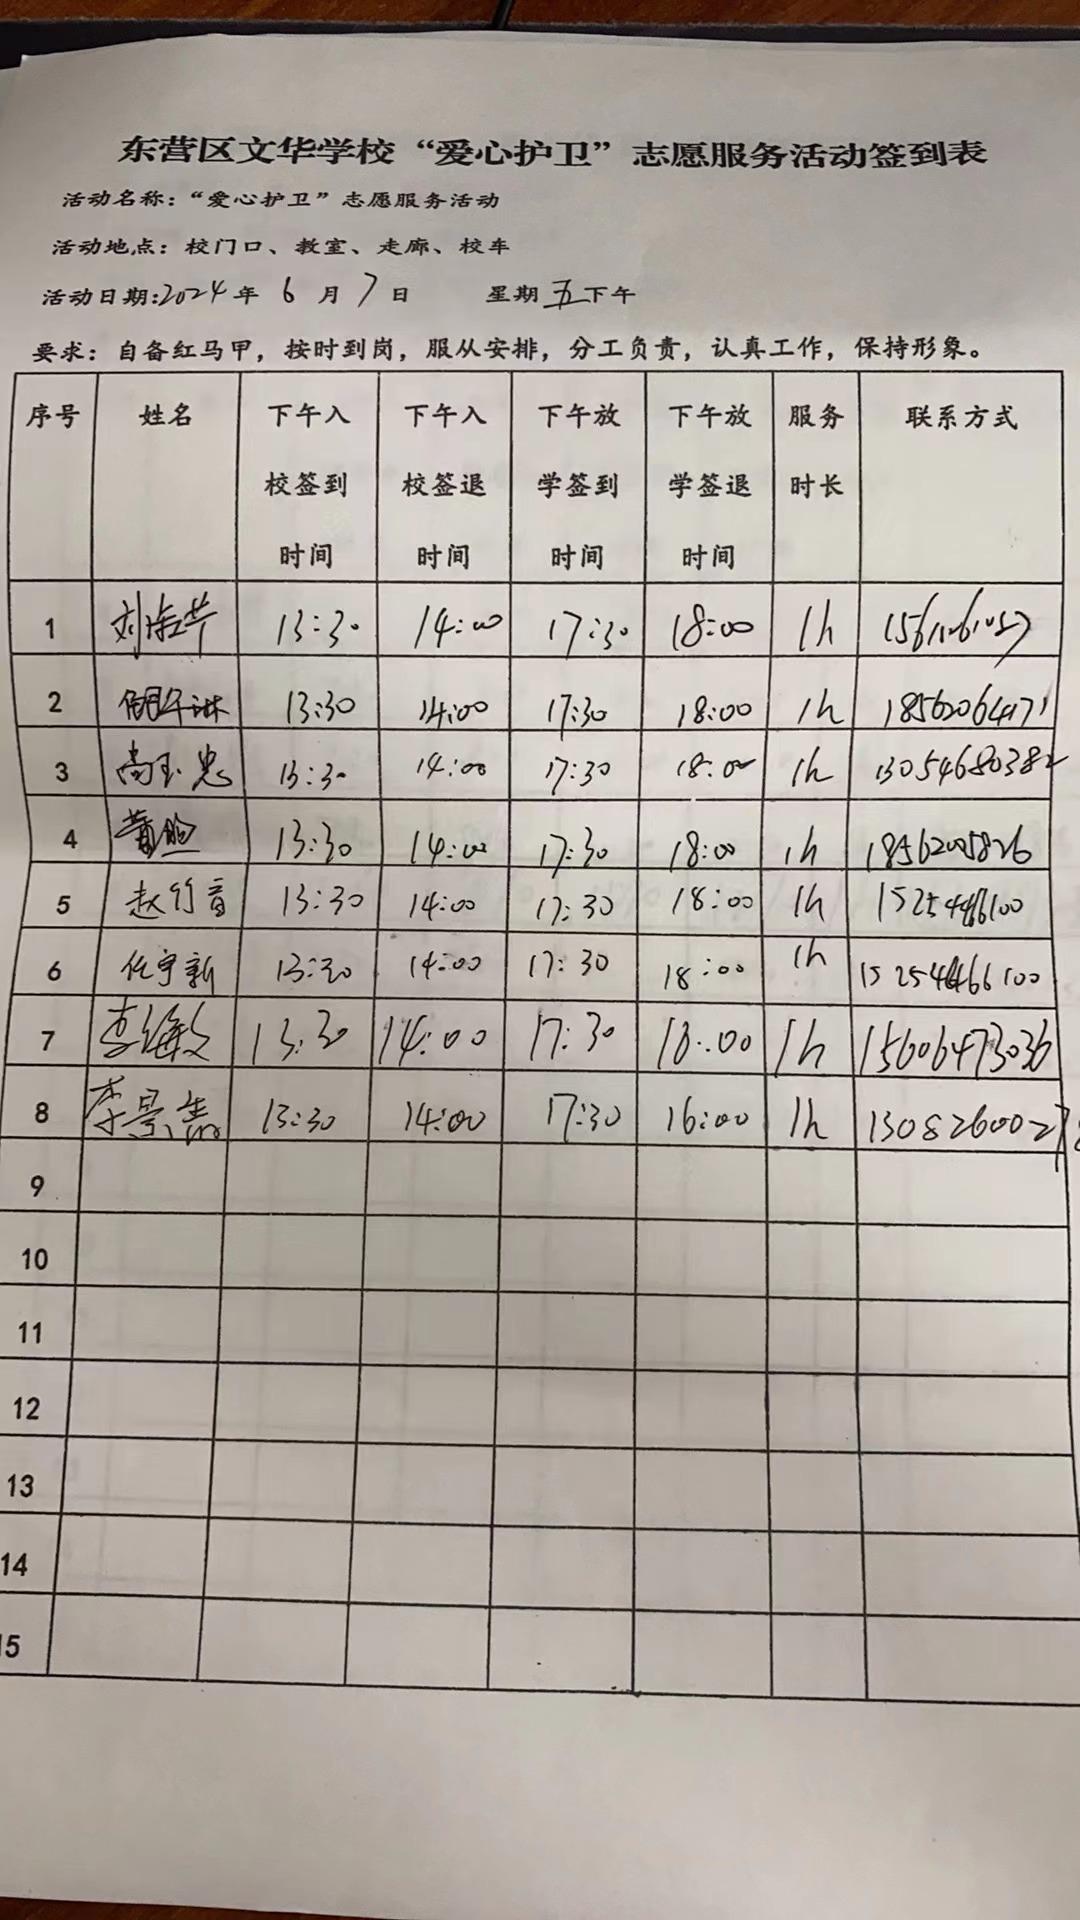 东营区文华学校“爱心护卫”志愿服务活动签到表
活动名称：“爱心护卫”志愿服务活动
活动地点：校门口、教室、走廊、校车
活动日期:2024年 6 月 7 日 星期五下午
要求：自备红马甲，按时到岗，服从安排，分工负责，认真工作，保持形象。
序号 姓名 下午入校签到时间 下午入校签退时间 下午放学签到时间 下午放学签退时间 服务时长 联系方式
1 13:30 14:00 17:30 18:00 1h
2 13:30 14:00 17:30 18:00 1h 18562064171
3 尚玉忠 13:30 14:00 17:30 18:00 1h 13054680382
4 13:30 14:00 17:30 18:00 1h 18562005826
5 赵竹音 13:30 14:00 17:30 18:00 1h
6 任宇新 13:30 14:00 17:30 18:00 1h
7 李维敏 13:30 14:00 17:30 18:00 1h 15606473036
8 李景 13:30 14:00 17:30 16:00 1h
9
10
11
12
13
14
15